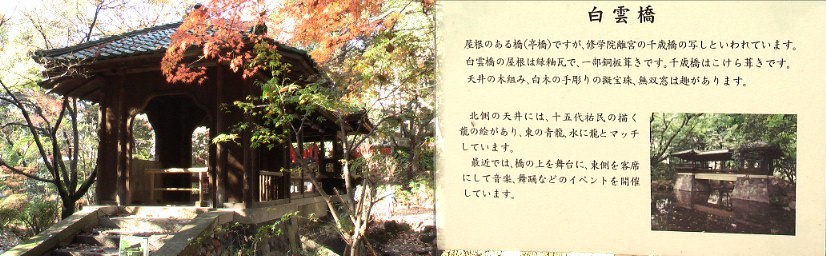 白雲橋
屋根のある橋(亭橋)ですが、修学院離宮の千歳橋の写しといわれています。
白雲橋の屋根は緑釉瓦で、一部銅板葺きです。千歳橋はこけら葺きです。
天井の木組み、白木の手彫りの擬宝珠、無双窓は趣があります。
北側の天井には、十五代祐民の描く
龍の絵があり、東の青龍、水に龍とマッチ
しています。
最近では、橋の上を舞台に、東側を客席
にして音楽、舞踊などのイベントを開催
しています。